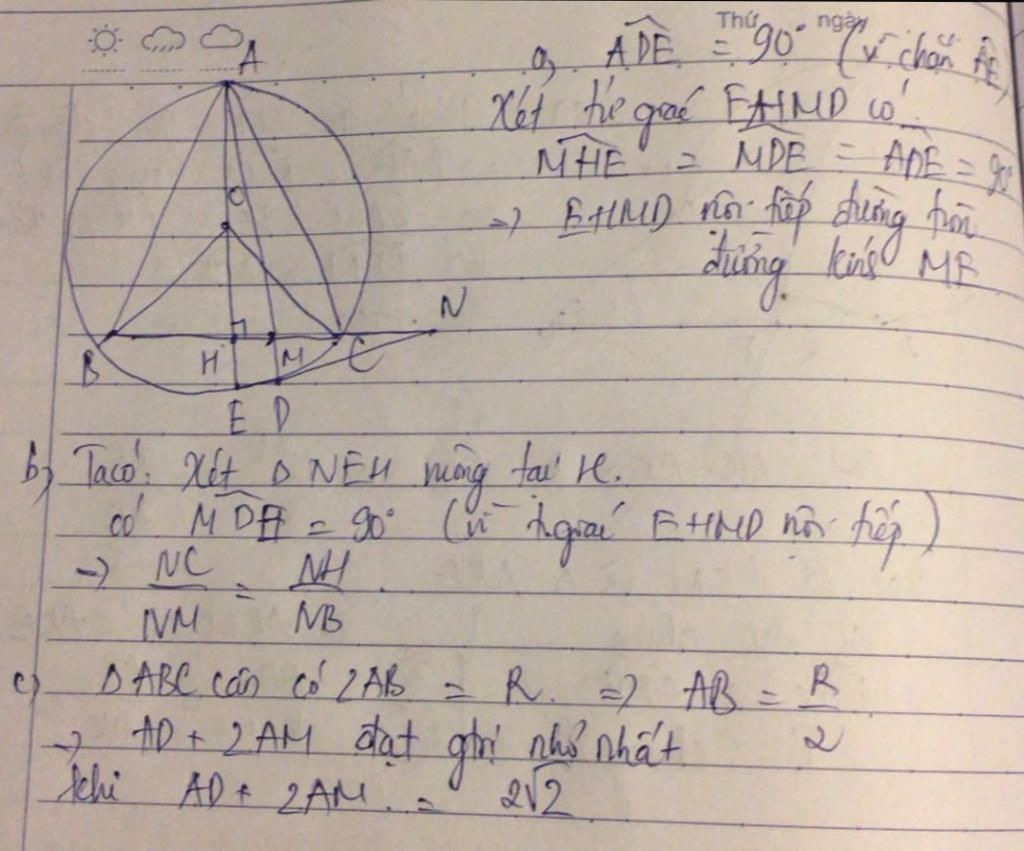 Thứ ngày
A
a, ADE = 90° (vì chắn AE)
Xét tứ giác EHMD có
MHE = MDE = ADE = 90°
=> EHMD nội tiếp đường tròn
đường kính ME
O
N
B H M C
E D
b) Ta có: Xét Δ NEH vuông tại H.
có MDE = 90° (vì tgiác EHMD nội tiếp)
→ NC/NM = NH/NB.
c) ΔABC cân có 2AB = R. => AB = R/2
→ AD + 2AM đạt gtrị nhỏ nhất
khi AD + 2AM. = 2√2